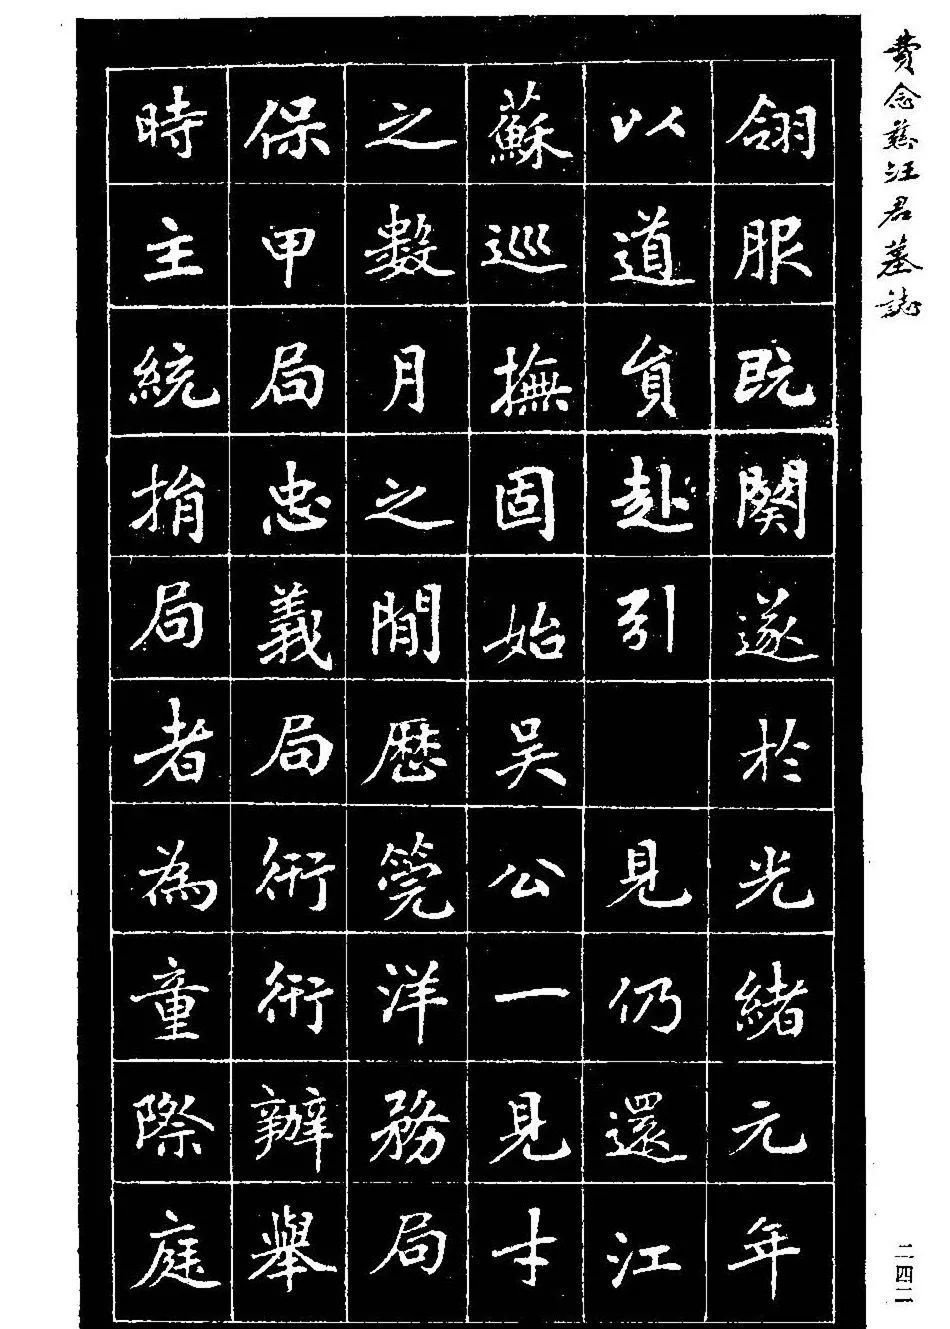 費念慈汪君墓誌
翕服既闋遂於光緒元年
以道員赴引 見仍還江
蘇巡撫固始吴公一見才
之數月之間歷筦洋務局
保甲局忠義局衎衎辦舉
時主統捐局者為童際庭
二四二